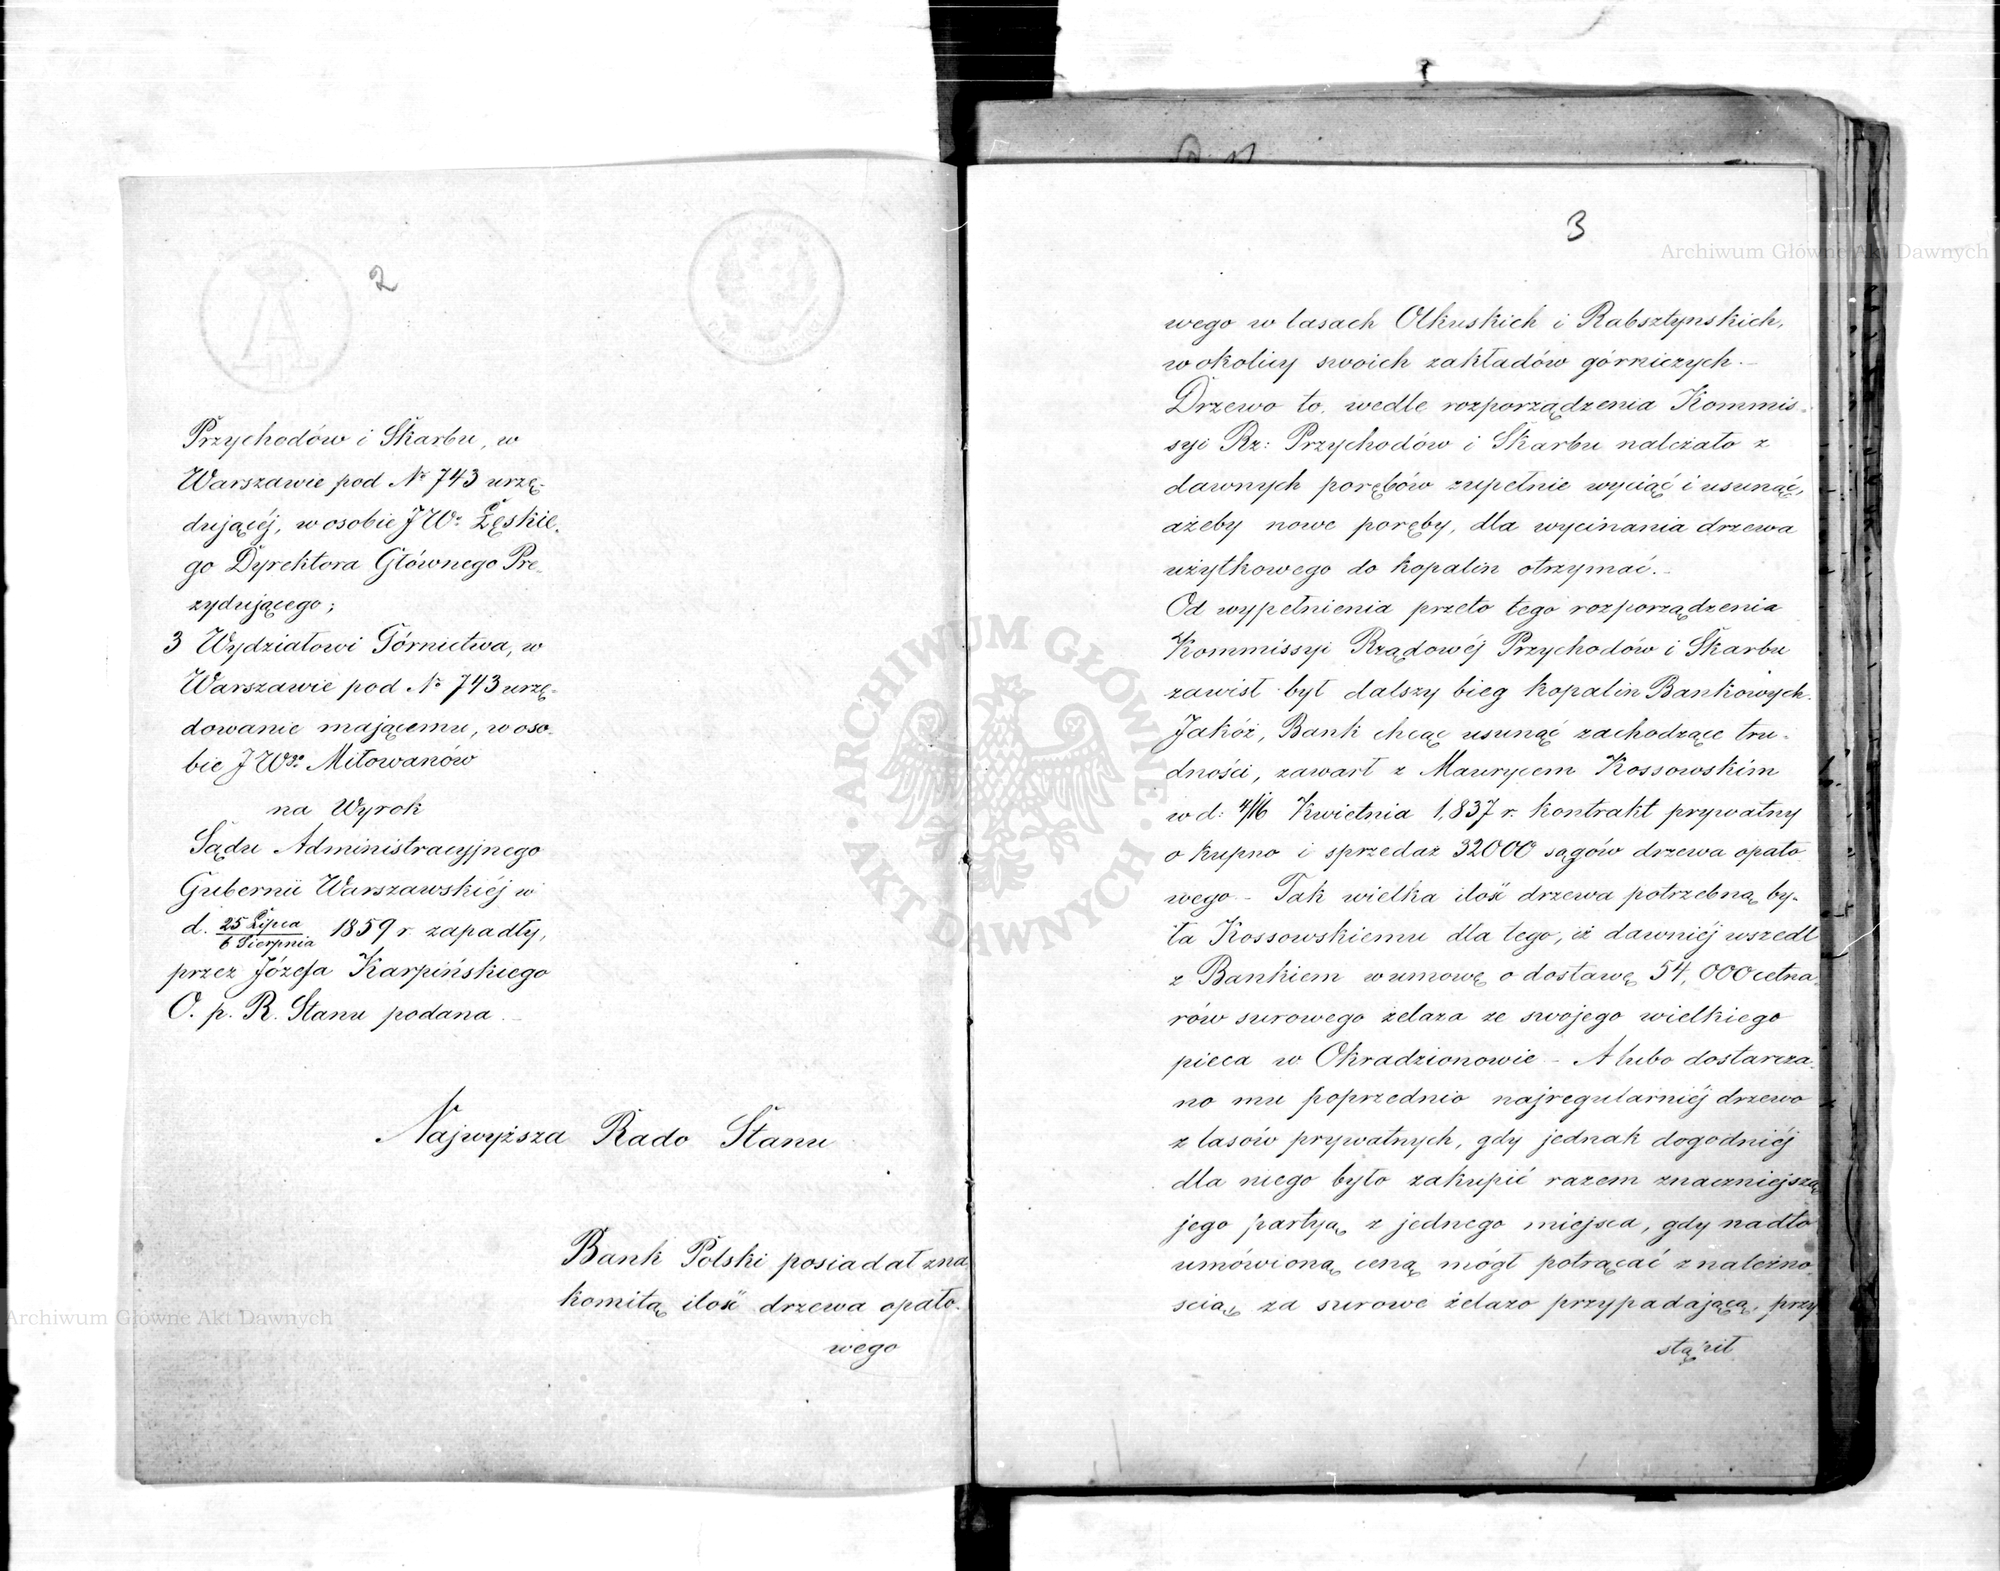 2
Przychodów i Skarbu, w
Warszawie pod No 743 urzę-
dującéj, w osobie JWo Łęskie-
go Dyrektora Głównego Pre-
zydującego;
3 Wydziałowi Górnictwa, w
Warszawie pod No 743 urzę-
dowanie mającemu, w oso-
bie JWgo Miłowanów
na Wyrok
Sądu Administracyjnego
Gubernii Warszawskiéj w
d. 25 Lipca / 6 Sierpnia 1859 r. zapadły,
przez Józefa Karpińskiego
O. p. R. Stanu podana.
Najwyższa Rado Stanu
Bank Polski posiadał zna
komitą ilość drzewa opało-
wego
3
wego w lasach Olkuskich i Rabsztynskich,
w okolicy swoich zakładów górniczych. -
Drzewo to, wedle rozporządzenia Kommis-
syi Rz: Przychodów i Skarbu należało z
dawnych porębów zupełnie wyciąć i usunąć,
ażeby nowe poręby, dla wycinania drzewa
użytkowego do kopalin otrzymać. -
Od wypełnienia przeto tego rozporządzenia
Kommissyi Rządowéj Przychodów i Skarbu
zawisł był dalszy bieg kopalin Bankowych.
Jakóż, Bank chcąc usunąć zachodzące tru-
dności, zawarł z Maurycem Kossowskim
w d: 4/16 Kwietnia 1,837 r. kontrakt prywatny
o kupno i sprzedaż 32000 sągów drzewa opało
wego - Tak wielka ilość drzewa potrzebną by-
ła Kossowskiemu dla tego, iż dawniéj wszedł
z Bankiem w umowę o dostawę 54,000 cetna-
rów surowego żelaza ze swojego wielkiego
pieca w Okradzionowie - A lubo dostarcza-
no mu poprzednio najregularniéj drzewo
z lasów prywatnych, gdy jednak dogodniéj
dla niego było zakupić razem znaczniejszą
jego partyą z jednego miejsca, gdy nadto
umówioną ceną mógł potrącać z należno-
scią za surowe żelazo przypadającą, przy
stąpił
Archiwum Główne Akt Dawnych
Archiwum Główne Akt Dawnych
ARCHIWUM GŁÓWNE AKT DAWNYCH